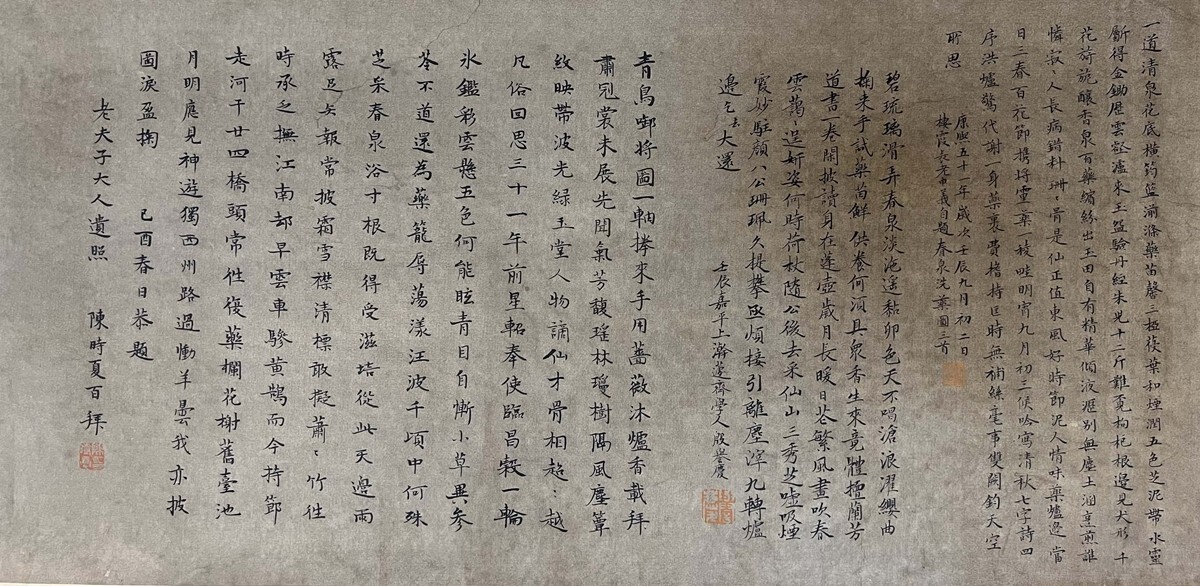 一道清泉花底橫筠籃湔滌藥苗馨三椏後葉和煙潤五色芝泥帶水靈
斸得金鋤歷雲壑瀘來玉盌驗丹經朱光十二斤難覓枸杞根邊見犬形 千
花荷詭釀香泉百藥繽紛出玉田自有精華傾液瀝別無塵土溷烹煎誰
憐寂〻人長病錯料珊〻骨是仙正值東風好時節泥人情味藥爐邊 當
日三春百花節攜將靈藥一稜畦明宵九月初三候吟寫清秋七字詩四
序洪爐驚代謝一身藥裹費檣持匡時無補絲毫事雙闕鈞天空
所思
康熙五十一年歲次壬辰九月初二日
棲霞長老 義自題春泉洗藥圖三首
碧琉璃滑弄春泉淡沲遙黏卵色天不唱滄浪濯纓曲
掬來手試藥苗鮮 供養何須具眾香生來竟體擅蘭芳
道書一卷閑披讀身在蓬壺歲月長暖日苍繁風畫吹春
雲藹〻逞妍姿何時荷杖隨公後去采仙山三秀芝噓吸煙
霞妙駐顏八公珊珮久提攀亟煩接引離塵滓九轉爐
邊乞大還
壬辰嘉平上澣蘧齋學人殷譽慶
青鳥啣將圖一軸捧來手用薔薇沐爐香載拜
肅冠裳未展先聞氣芳馥瑤林瓊樹隔風塵簟
紋映帶波光綠玉堂人物謫仙才骨相超〻越
凡俗回思三十一年前星軺奉使臨昌穀一輪
氷鑑彩雲懸五色何能眩青目自慚小草異參
苓不道還為藥籠辱蕩漾汪波千頃中何殊
芝采春泉浴寸根既得受滋培從此天邊雨
露足与報常披霜雪襟清標敢擬蕭〻竹往
時承乏撫江南却早雲車驂黃鵠而今持節
走河干廿四橋頭常往復藥欄花榭舊臺池
月明應見神遊獨西州路過慟羊曇我亦披
圖淚盈掬 己酉春日恭題
老夫子大人遺照 陳時夏百拜